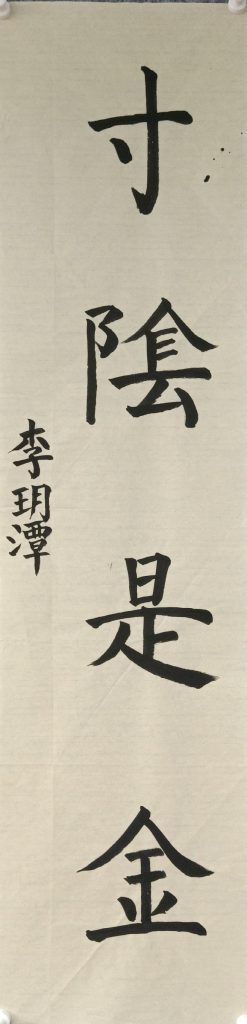 寸陰是金
李玥潭